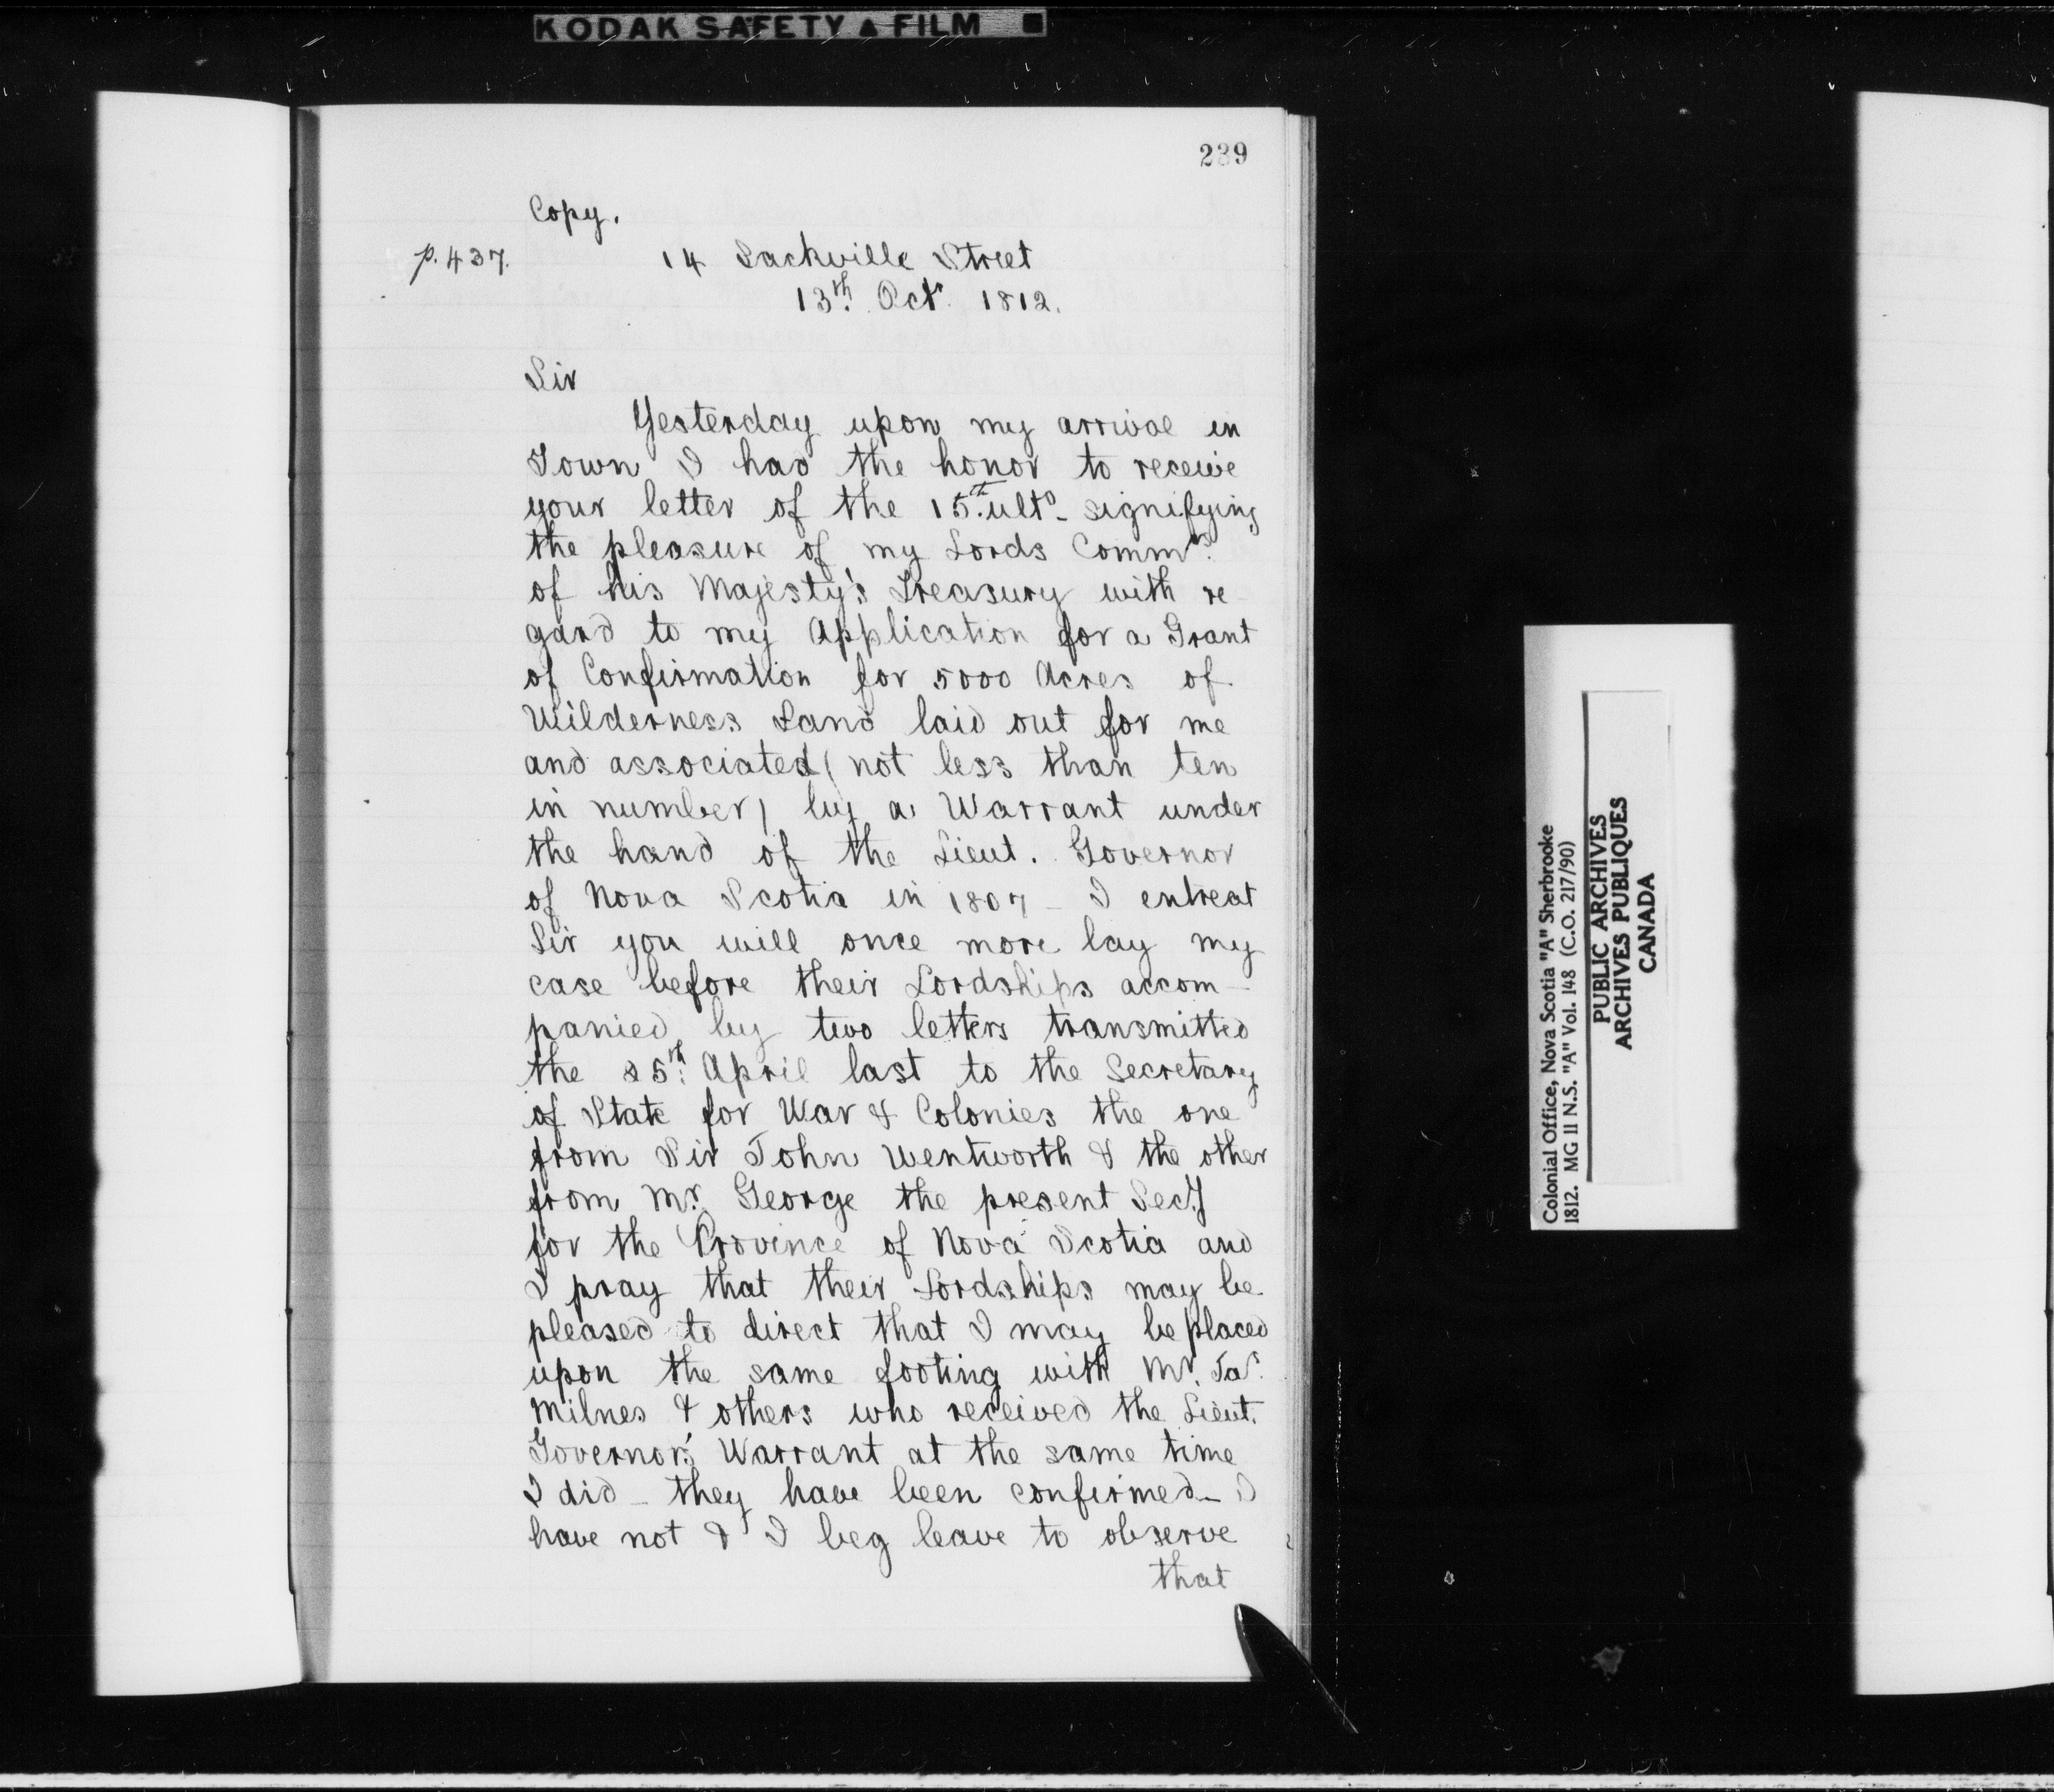 KODAK SAFETY ▲ FILM ■
239
Copy.
p. 437.
14 Sackville Street
13th. Octr. 1812.
Sir
Yesterday upon my arrival in
Town I had the honor to receive
your letter of the 15th. ulto_ signifying
the pleasure of my Lords Commrs.
of his Majesty's Treasury with re
gard to my Application for a Grant
of Confirmation for 5000 Acres of
Wilderness Land laid out for me
and associated (not less than ten
in number) by a Warrant under
the hand of the Lieut. Governor
of Nova Scotia in 1807 _ I entreat
Sir you will once more lay my
case before their Lordships accom-
panied by two letters transmitted
the 25th. April last to the Secretary
of State for War & Colonies the one
from Sir John Wentworth & the other
from Mr. George the present Secy
for the Province of Nova Scotia and
I pray that their Lordships may be
pleased to direct that I may be placed
upon the same footing with Mr. Jas.
Milnes & others who received the Lieut.
Governor's Warrant at the same time
I did _ they have been confirmed _ I
have not & I beg leave to observe
that
Colonial Office, Nova Scotia "A" Sherbrooke
1812. MG 11 N.S. "A" Vol. 148 (C.O. 217/90)
PUBLIC ARCHIVES
ARCHIVES PUBLIQUES
CANADA